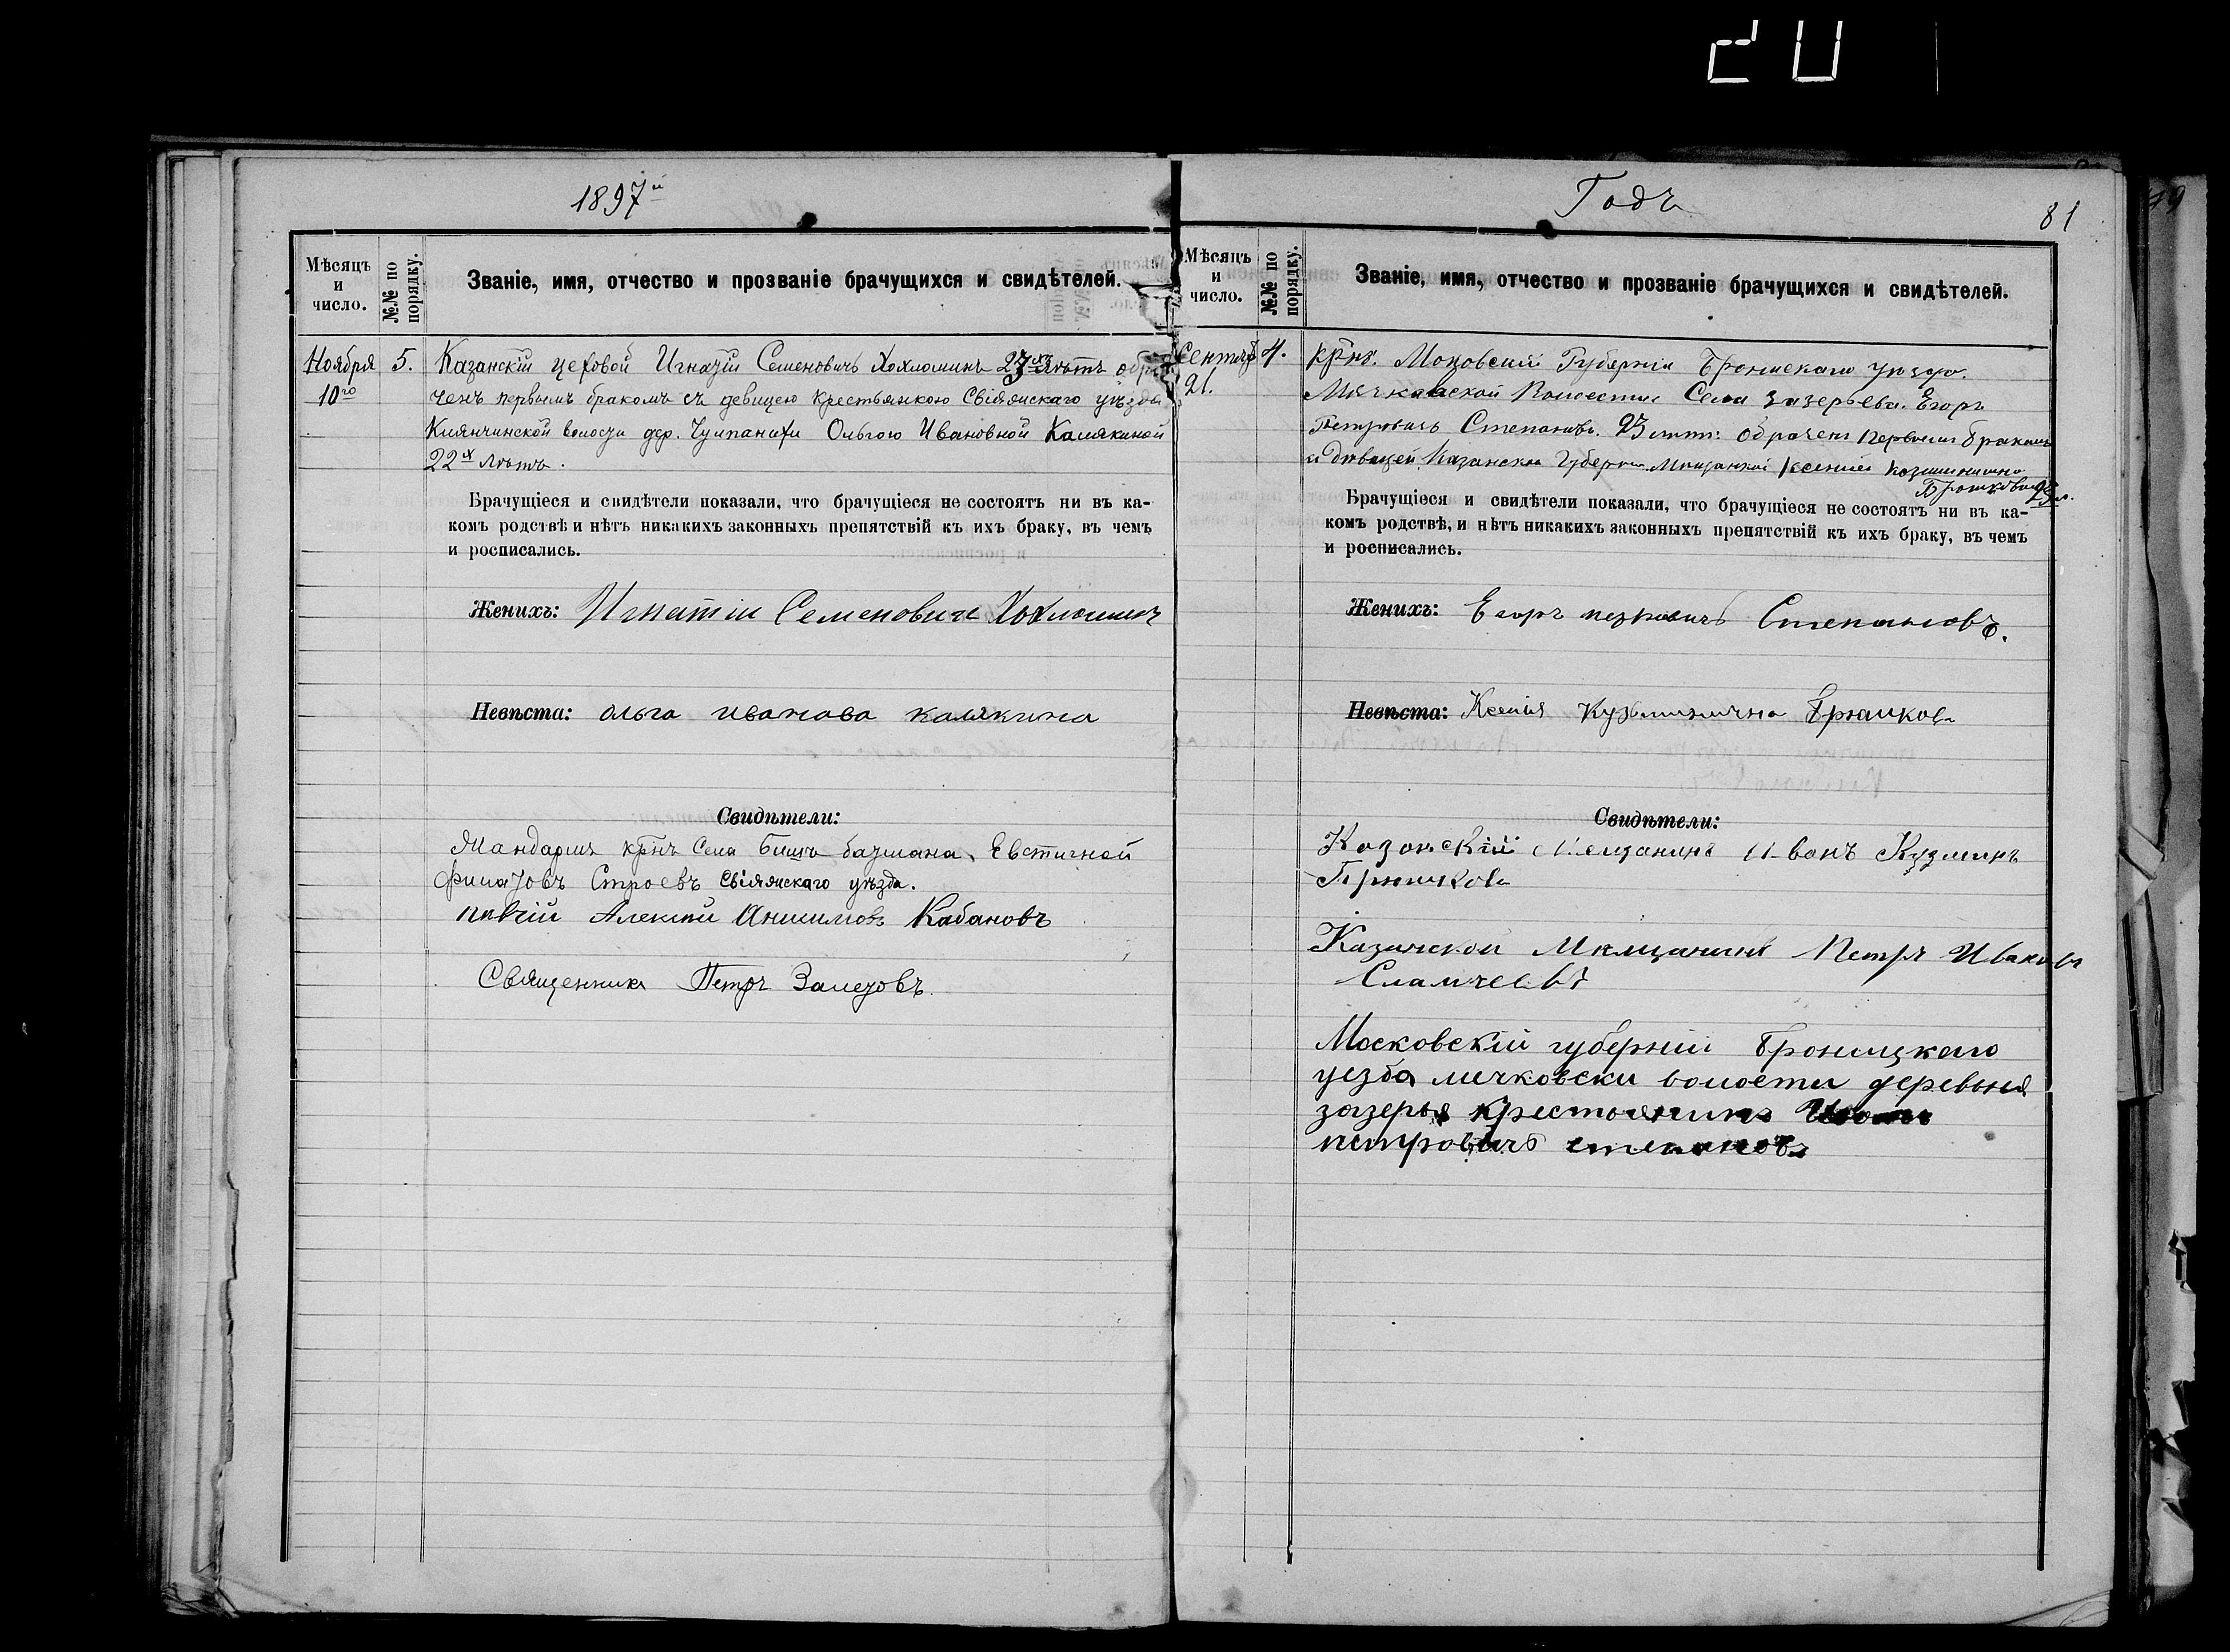 20
1897й
Мѣсяцъ и число.
№№ по порядку.
Званіе, имя, отчество и прозваніе брачущихся и свидѣтелей.
Ноября 10го
5.
Казанскій цеховой Игнатій Семеновичъ Хохломинъ 23хъ лѣтъ обру
ченъ первымъ бракомъ съ девицею крестьянкою Свіяжскаго уѣзда
волости дер. Ольгою Ивановной Калякиной
22х лѣтъ.
Брачущіеся и свидѣтели показали, что брачущіеся не состоятъ ни въ ка-
комъ родствѣ и нѣтъ никакихъ законныхъ препятствій къ ихъ браку, въ чемъ
и росписались.
Женихъ: Игнатіи Семеновичь Хохломинъ
Невѣста: ольга иванова калякина
Свидѣтели:
крнъ Села Бишъ Евстигней
Строевъ Свіяжскаго уѣзда.
пѣвчій Алексѣй Кабановъ
Священникъ Петръ
Годъ
81
Мѣсяцъ и число.
№№ по порядку.
Званіе, имя, отчество и прозваніе брачущихся и свидѣтелей.
21.
4.
крнъ. Губерніи уѣзда.
Села Зазерьева. Егоръ
Петровичъ Степановъ. 23 лѣтъ. Обрачен первымъ бракомъ
с дѣвицей, Казанской Губерніи Мещанкой Ксеніей
Брачущіеся и свидѣтели показали, что брачущіеся не состоятъ ни въ ка-
комъ родствѣ, и нѣтъ никакихъ законныхъ препятствій къ ихъ браку, въ чемъ
и росписались.
Женихъ: Егоръ петровичъ Степановъ.
Невѣста: Ксенія Кузьминична
Свидѣтели:
Казанскій Мещанинъ Иванъ Кузминъ
Казанской Мещанинъ Петръ
Московскій губерніи Броницкаго
уезда мечковски волости деревьня
зазерья
петровичъ степоновъ